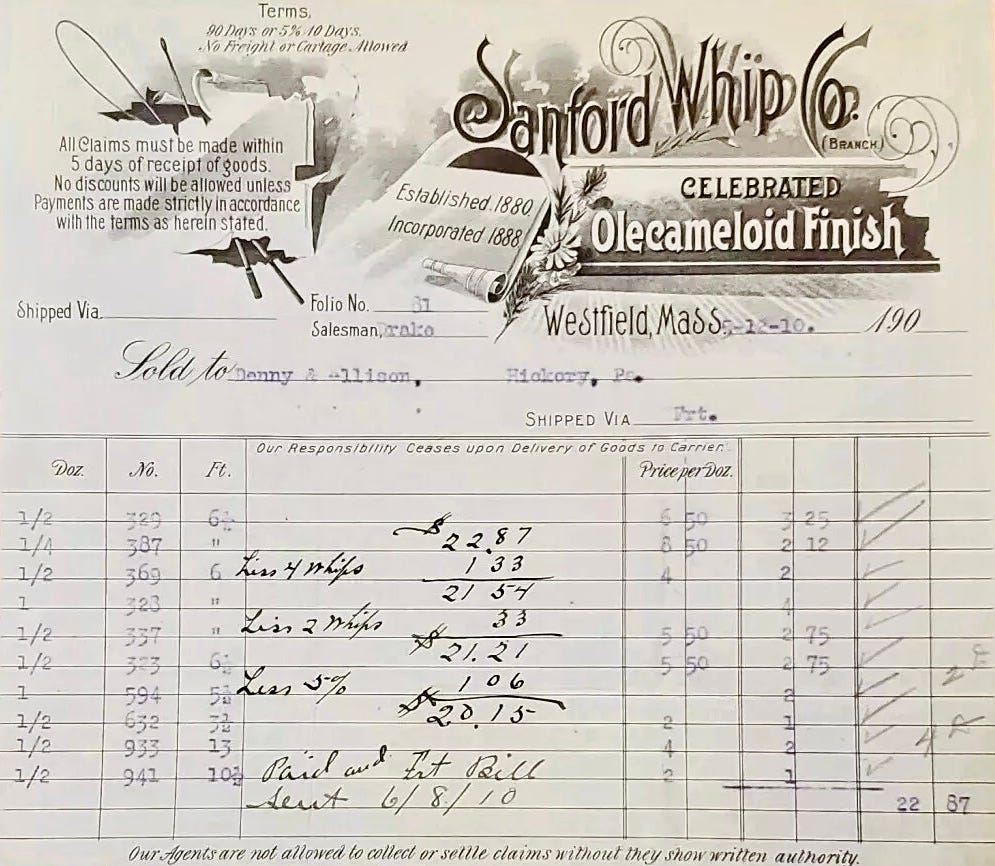 Terms,
90 Days or 5% 10 Days.
No Freight or Cartage Allowed
Sanford Whip Co.
(BRANCH)
CELEBRATED
Olecameloid Finish
All Claims must be made within
5 days of receipt of goods.
No discounts will be allowed unless
Payments are made strictly in accordance
with the terms as herein stated.
Established 1880
Incorporated 1888
Shipped Via
Folio No. 81
Salesman, Drake
Westfield, Mass. 5-12-10. 190
Sold to Denny & Allison, Hickory, Pa.
SHIPPED VIA Frt.
Our Responsibility Ceases upon Delivery of Goods to Carrier.
Doz. No. Ft. Price per Doz.
1/2 329 6½ 6 50 3 25
$22.87
1/4 387 " 8 50 2 12
1/2 369 6 Less 4 Whips 1 33 4 2
1 328 " 21 54 4
1/2 337 " Less 2 Whips 33 5 50 2 75
1/2 323 6½ $21.21 5 50 2 75
1 594 5½ Less 5% 1 06 2
1/2 632 3½ $20.15 2 1
1/2 933 13 4 2
1/2 941 10½ Paid and Frt Bill 2 1
sent 6/8/10 22 87
Our Agents are not allowed to collect or settle claims without they show written authority.